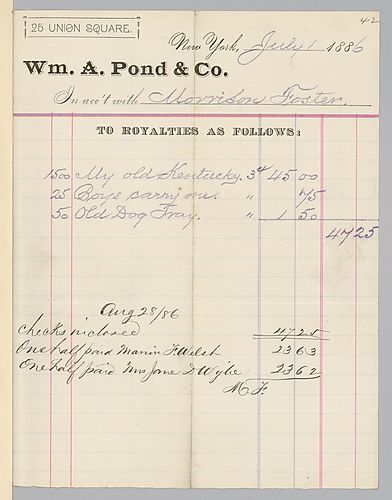 42
25 UNION SQUARE.
New York, July 1 1886
Wm. A. Pond & Co.
In acc't with Morrison Foster.
TO ROYALTIES AS FOLLOWS:
1500 My old Kentucky. 3¢ 45 00
25 Boys carry me. " 75
50 Old Dog Tray. " 1 50
47 25
Aug 28/86
Checks inclosed 47 25
One half paid F Welsh 23 63
One half paid Mrs Jane D Wyle 23 62
M. F.